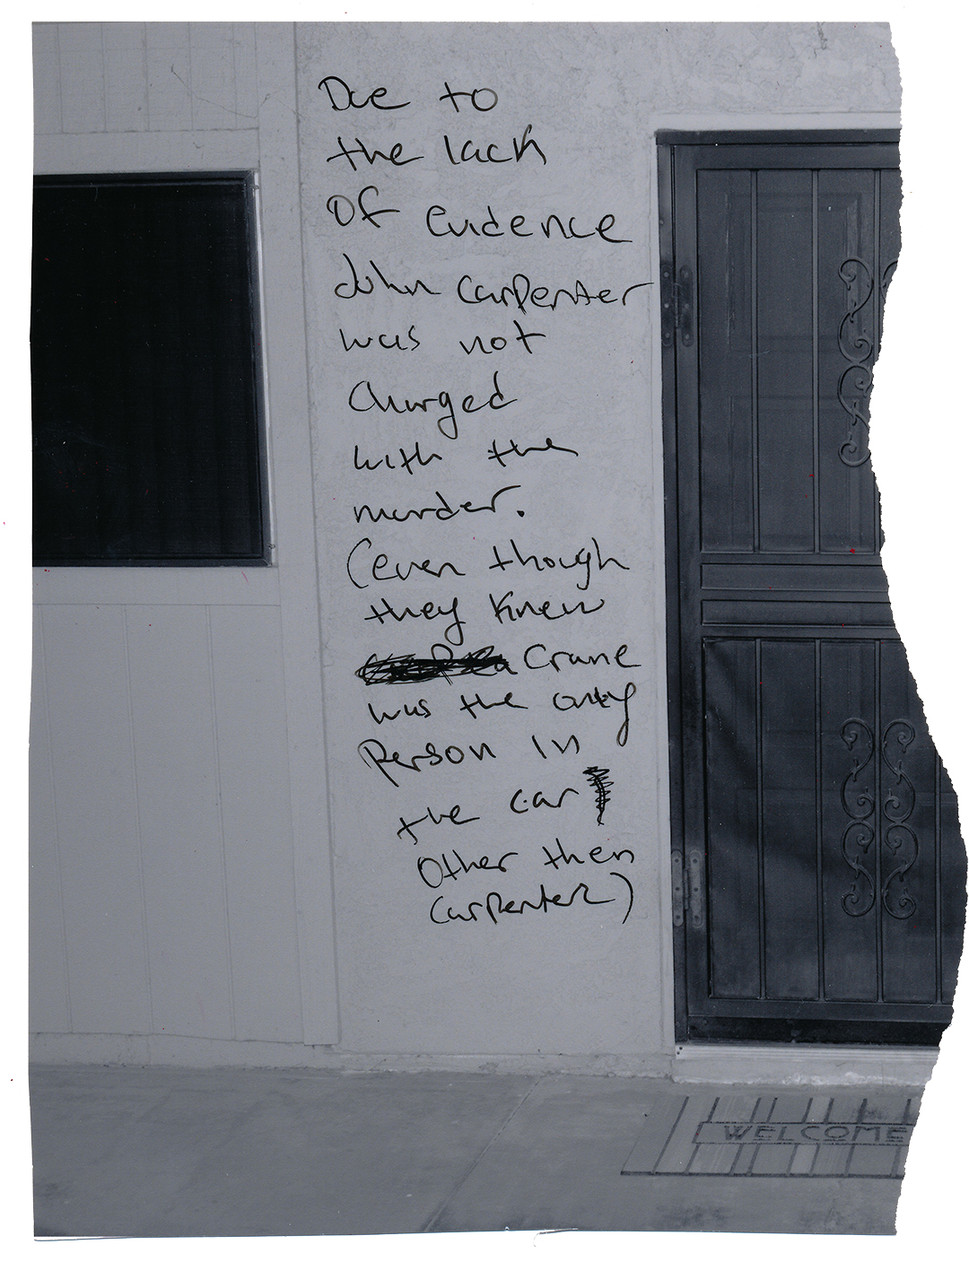 Due to
the lack
Of evidence
John Carpenter
was not
Charged
with the
murder.
(even though
they knew
Crane
was the only
Person in
the car
Other then
Carpenter)
WELCOME